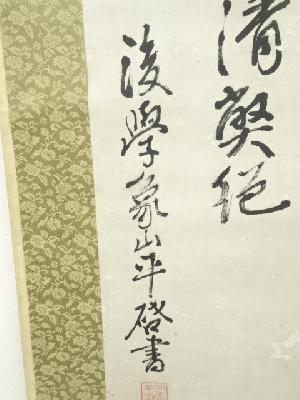 清奬絕
後學象山平啓書